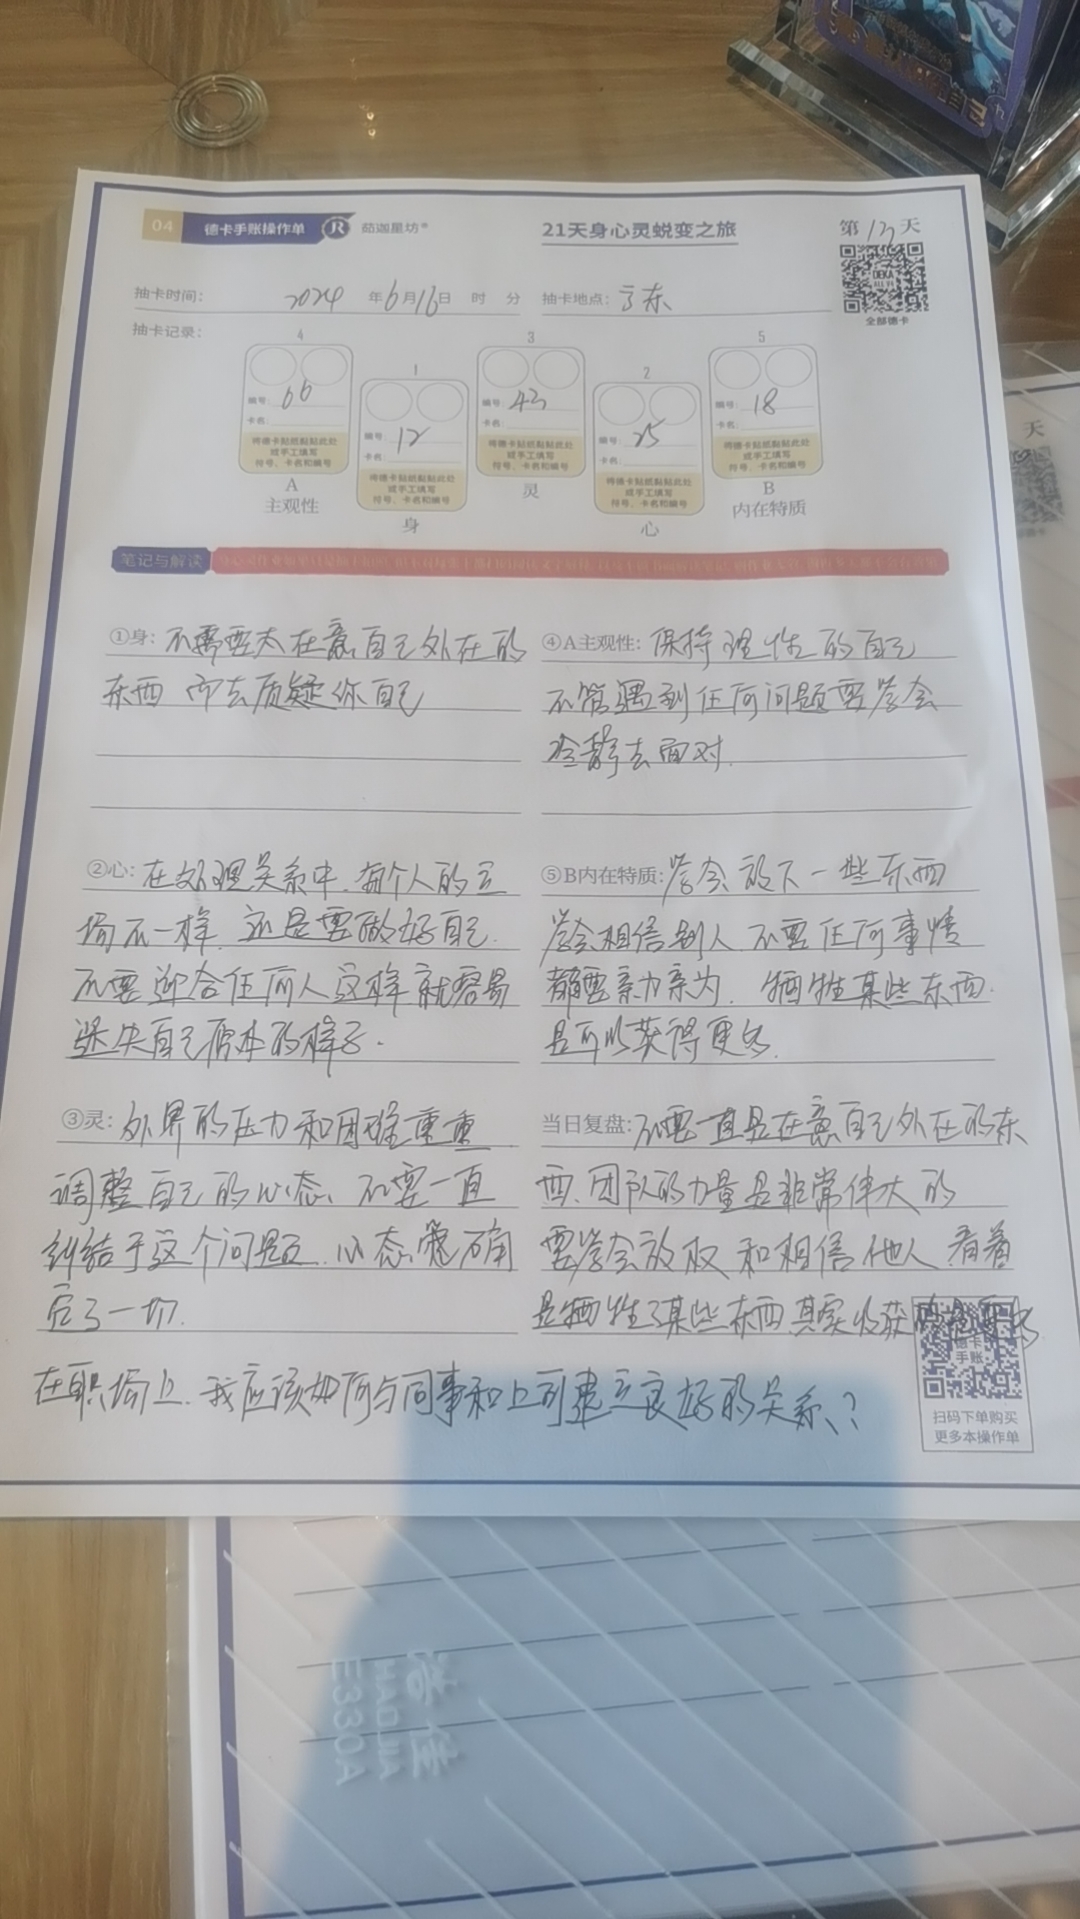 04 德卡手账操作单 JR 茹迦星坊®
21天身心灵蜕变之旅
第13天
DEKA
全部德卡
抽卡时间: 2024 年6月16日 时 分 抽卡地点:
抽卡记录:
4 1 3 2 5
编号: 66
卡名:
将德卡贴纸黏贴此处
或手工填写
符号、卡名和编号
A
主观性
编号: 12
卡名:
将德卡贴纸黏贴此处
或手工填写
符号、卡名和编号
身
编号: 43
卡名:
将德卡贴纸黏贴此处
或手工填写
符号、卡名和编号
灵
编号: 25
卡名:
将德卡贴纸黏贴此处
或手工填写
符号、卡名和编号
心
编号: 18
卡名:
将德卡贴纸黏贴此处
或手工填写
符号、卡名和编号
B
内在特质
笔记与解读
①身: 不需要太在意自己外在的
东西 而去质疑你自己
④A主观性: 保持理性的自己
不管遇到任何问题要学会
冷静去面对.
②心: 在处理关系中.每个人的立
场不一样. 还是要做好自己.
不要迎合任何人这样就容易
迷失自己原本的样子.
⑤B内在特质: 学会放下一些东西
学会相信别人 不要任何事情
都要亲力亲为. 牺牲某些东西.
是可以获得更多.
③灵: 外界的压力和困难重重
调整自己的心态、不要一直
纠结于这个问题. 心态
了一切.
当日复盘: 不要一直是在意自己外在的东
西. 团队的力量是非常伟大的
要学会放权 和相信他人. 看着
是牺牲了某些东西 其实收获
在职场上. 我应该如何与同事和上司建立良好的关系?
德卡
手账
扫码下单购买
更多本操作单
天
自己
HAOJIA
E330A